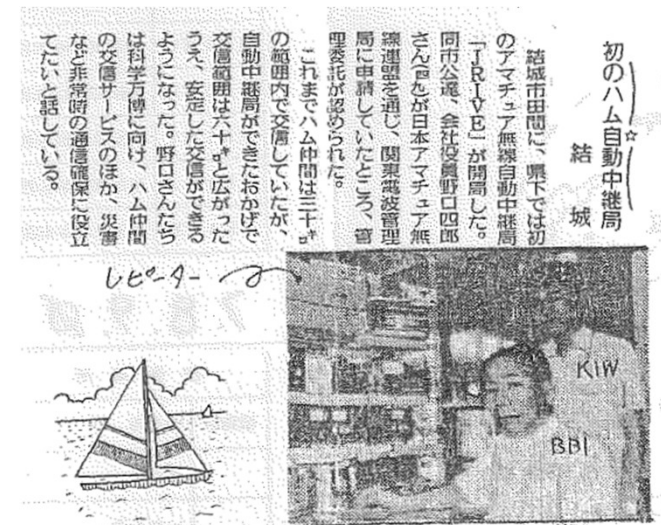 初のハム自動中継局
結城
結城市田間に、県下では初
のアマチュア無線自動中継局
「JR1VE」が開局した。
同市公達、会社役員野口四郎
さん(四九)が日本アマチュア無
線連盟を通じ、関東電波管理
局に申請していたところ、管
理委託が認められた。
これまでハム仲間は三十㌔
の範囲内で交信していたが、
自動中継局ができたおかげで
交信範囲は六十㌔と広がった
うえ、安定した交信ができる
ようになった。野口さんたち
は科学万博に向け、ハム仲間
の交信サービスのほか、災害
など非常時の通信確保に役立
てたいと話している。
レピーター
KIW
BBI